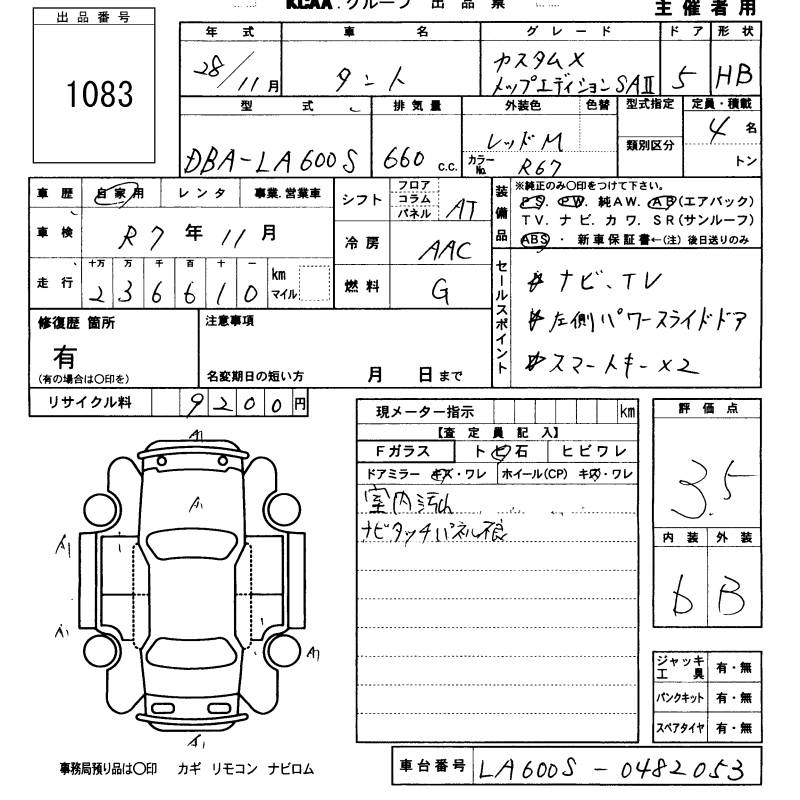 KCAA.グループ 出品票
主催者用
出品番号
1083
年式 車名 グレード ドア 形状
28/11月 タント カスタムX
トップエディションSAⅡ 5 HB
型式 排気量 外装色 色替 型式指定 定員・積載
DBA-LA600S 660 c.c. レッドM 4 名
カラーNo. R67 類別区分 トン
車歴 自家用 レンタ 事業.営業車
シフト フロア コラム パネル AT
装備品 ※純正のみ〇印をつけて下さい。
PS. PW. 純AW. AB(エアバック)
TV. ナビ. カワ. SR(サンルーフ)
ABS ・ 新車保証書←(注) 後日送りのみ
車検 R7年11月
冷房 AAC
走行 十万 万 千 百 十 一
236610 km マイル
燃料 G
セールスポイント
# ナビ、TV
# 左側パワースライドドア
# スマートキー×2
修復歴 箇所
有
(有の場合は〇印を)
注意事項
名変期日の短い方 月 日まで
リサイクル料 9200円
現メーター指示 km
【査定員記入】
Fガラス トビ石 ヒビワレ
ドアミラー キズ・ワレ ホイール(CP) キズ・ワレ
室内汚れ
ナビタッチパネル不良
評価点
3.5
内装 外装
D B
A1
A1
A1
A1
A1
ジャッキ工具 有・無
パンクキット 有・無
スペアタイヤ 有・無
事務局預り品は〇印 カギ リモコン ナビロム
車台番号 LA600S-0482053